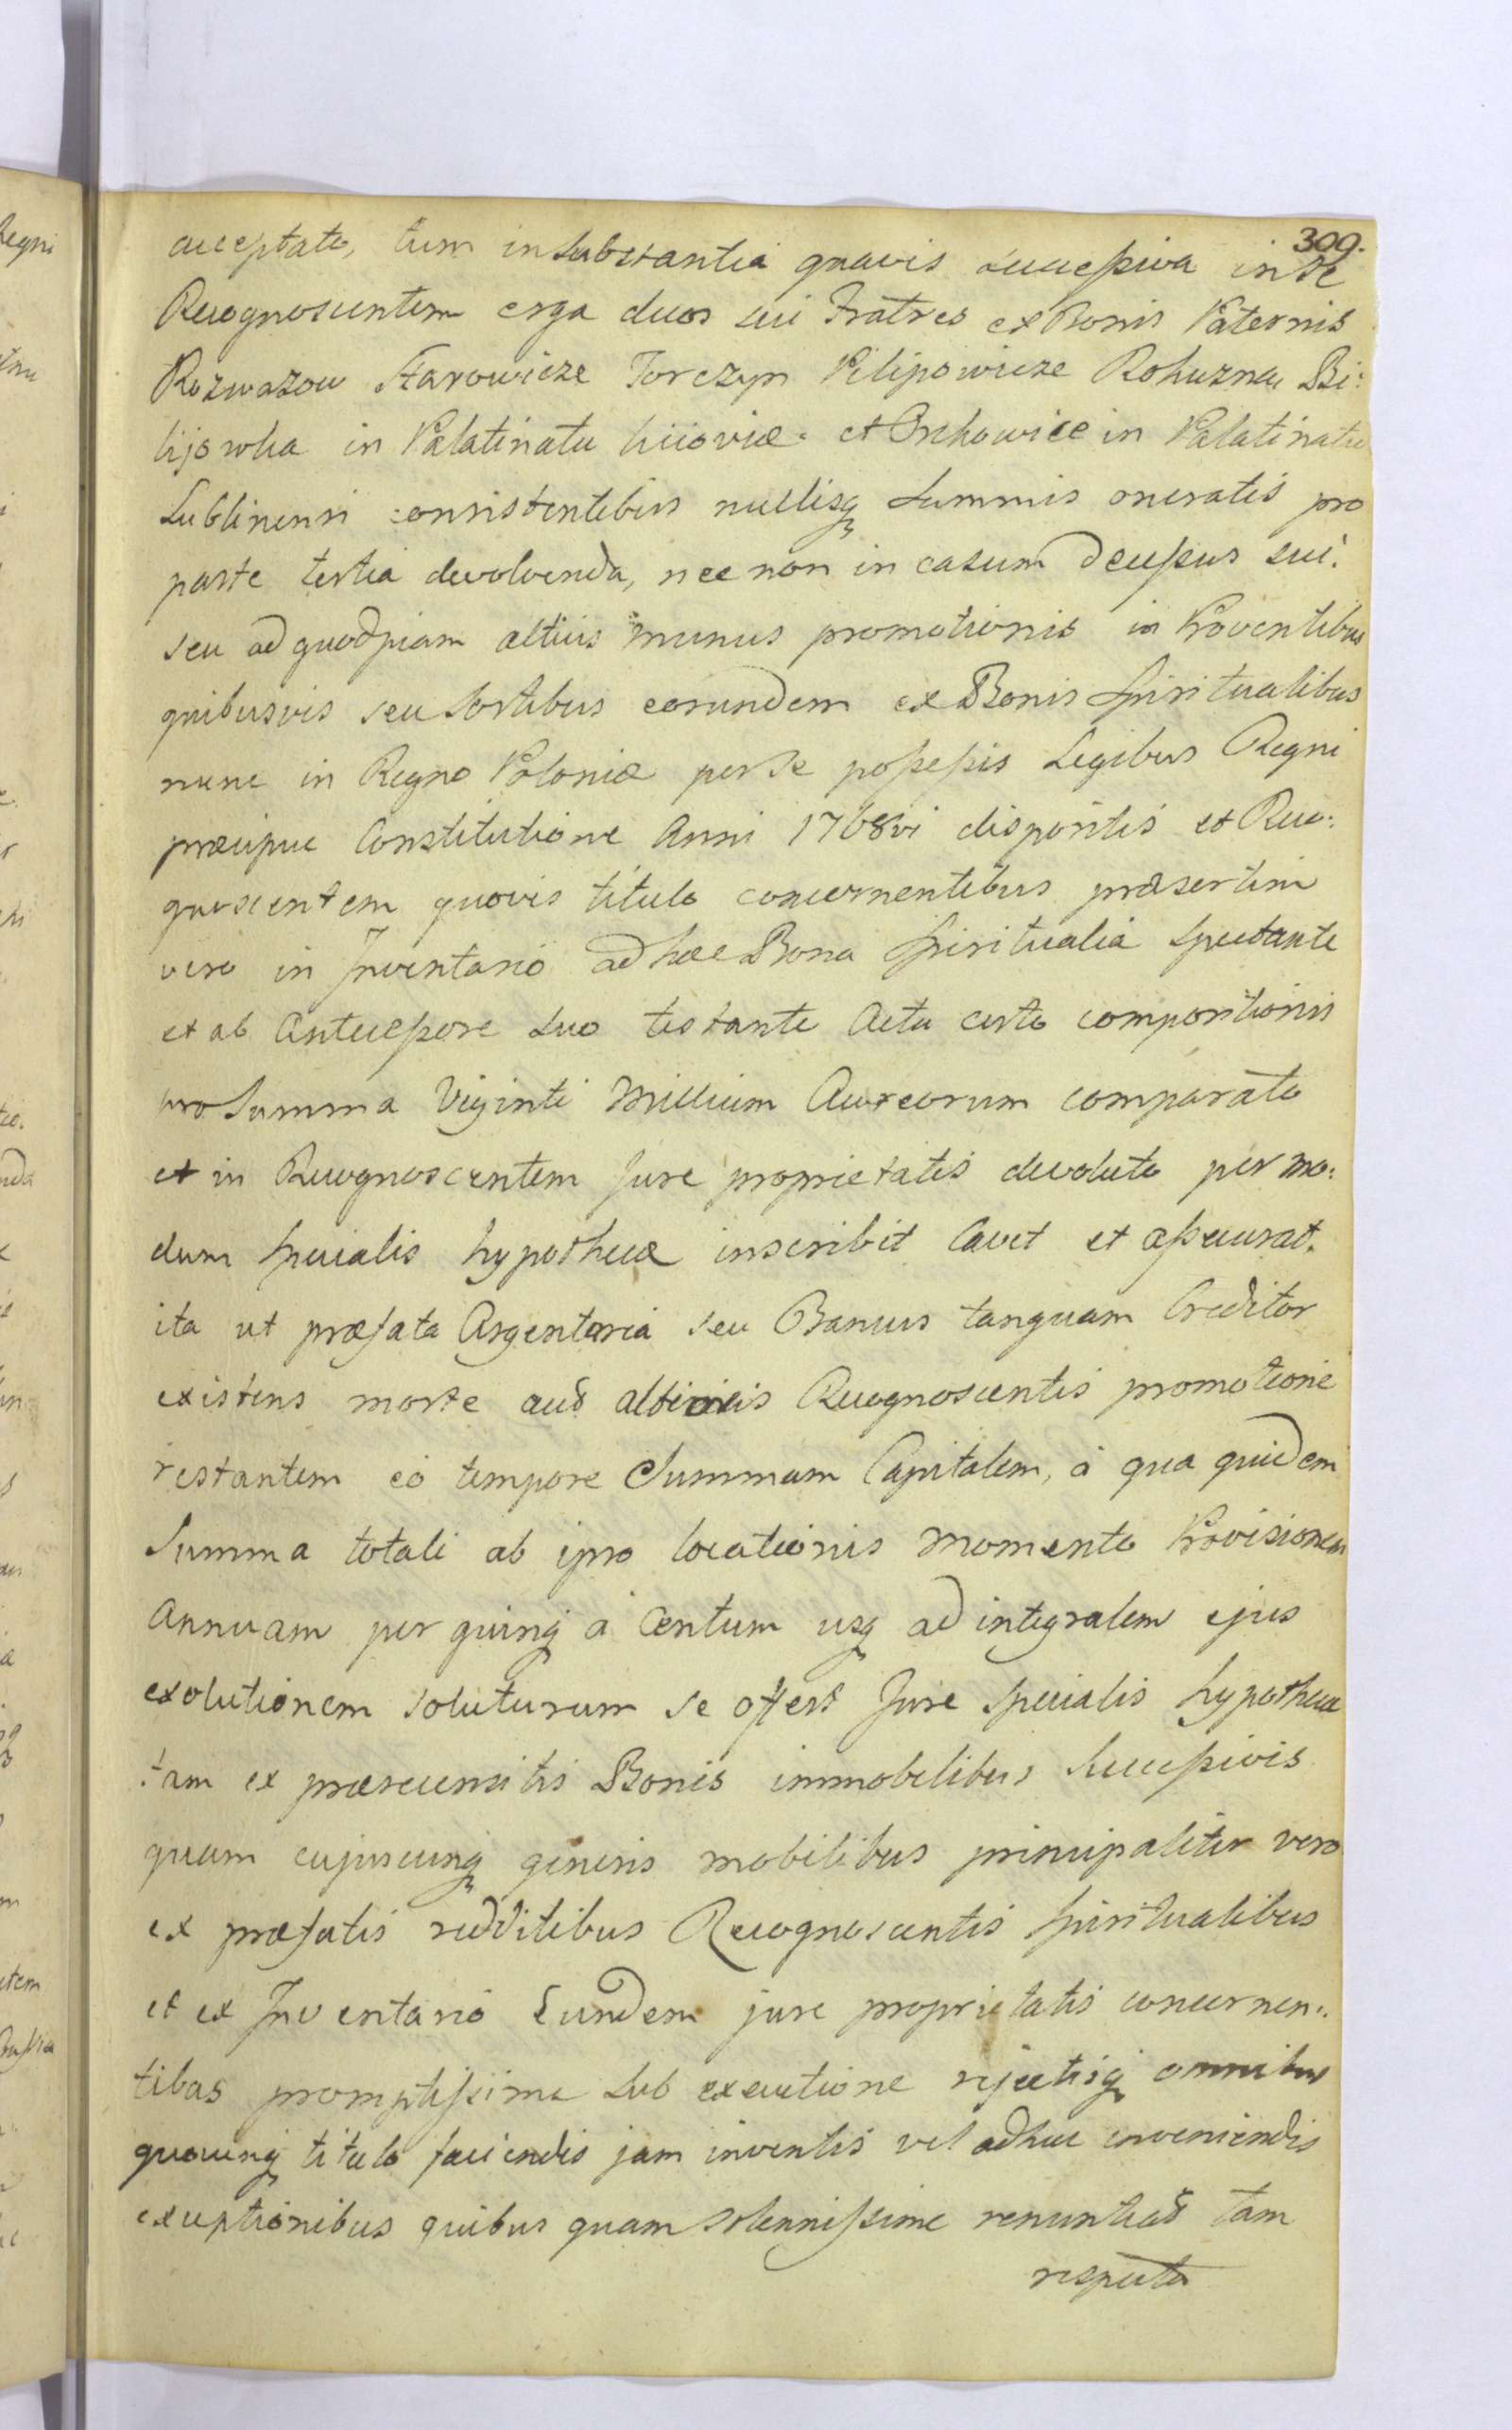 309.
acceptato, tum in Substantia quavis Successiva in Se
Recognoscentem erga duos sui Fratres ex Bonis Paternis
Rozwazow Starowicze Torczyn Pilipowicze Rohuzna Bi:
lijowka in Palatinatu Kiioviæ et Orchowice in Palatinatu
Lublinensi consistentibus nullisq Summis oneratis pro
parte tertia devolvenda, nec non in casum decessus sui
seu ad quodpiam altius munus promotionis in Proventibus
quibusvis seu Sortibus eorundem ex Bonis Spiritualibus
nunc in Regno Poloniæ per Se possessis Legibus Regni
præcipue Constitutione Anni 1768vi dispositis et Reco:
gnoscentem quovis titulo concernentibus præsertim
vero in Inventario ad hæc Bona Spiritualia Spectante
et ab Antecessore Suo testante Actu certo compositionis
pro Summa Viginti Millium Aureorum comparato
et in Recognoscentem Jure proprietatis devoluto per mo:
dum Specialis hypothecæ inscribit Cavet et assecurat.
ita ut præfata Argentaria seu Bancus tanquam Creditor
existens morte aut altioris Recognoscentis promotione
restantem eo tempore Summam Capitalem, à qua quidem
Summa totali ab ipso locationis momento Provisionem
Annuam per quinq à Centum usq ad integralem ejus
exolutionem soluturum se offert Jure Specialis hypothecæ
tam ex præscensitis Bonis immobilibus Successivis
quam cujuscunq generis mobilibus principaliter vero
ex præfatis redditibus Recognoscentis Spiritualibus
et ex Inventario Eundem jure proprietatis concernen:
tibus promptissima Sub executione rejectisq omnibus
quocunq titulo faciendis jam inventis vel adhuc inveniendis
exceptionibus quibus quam solennissime renuntiat tam
respectu